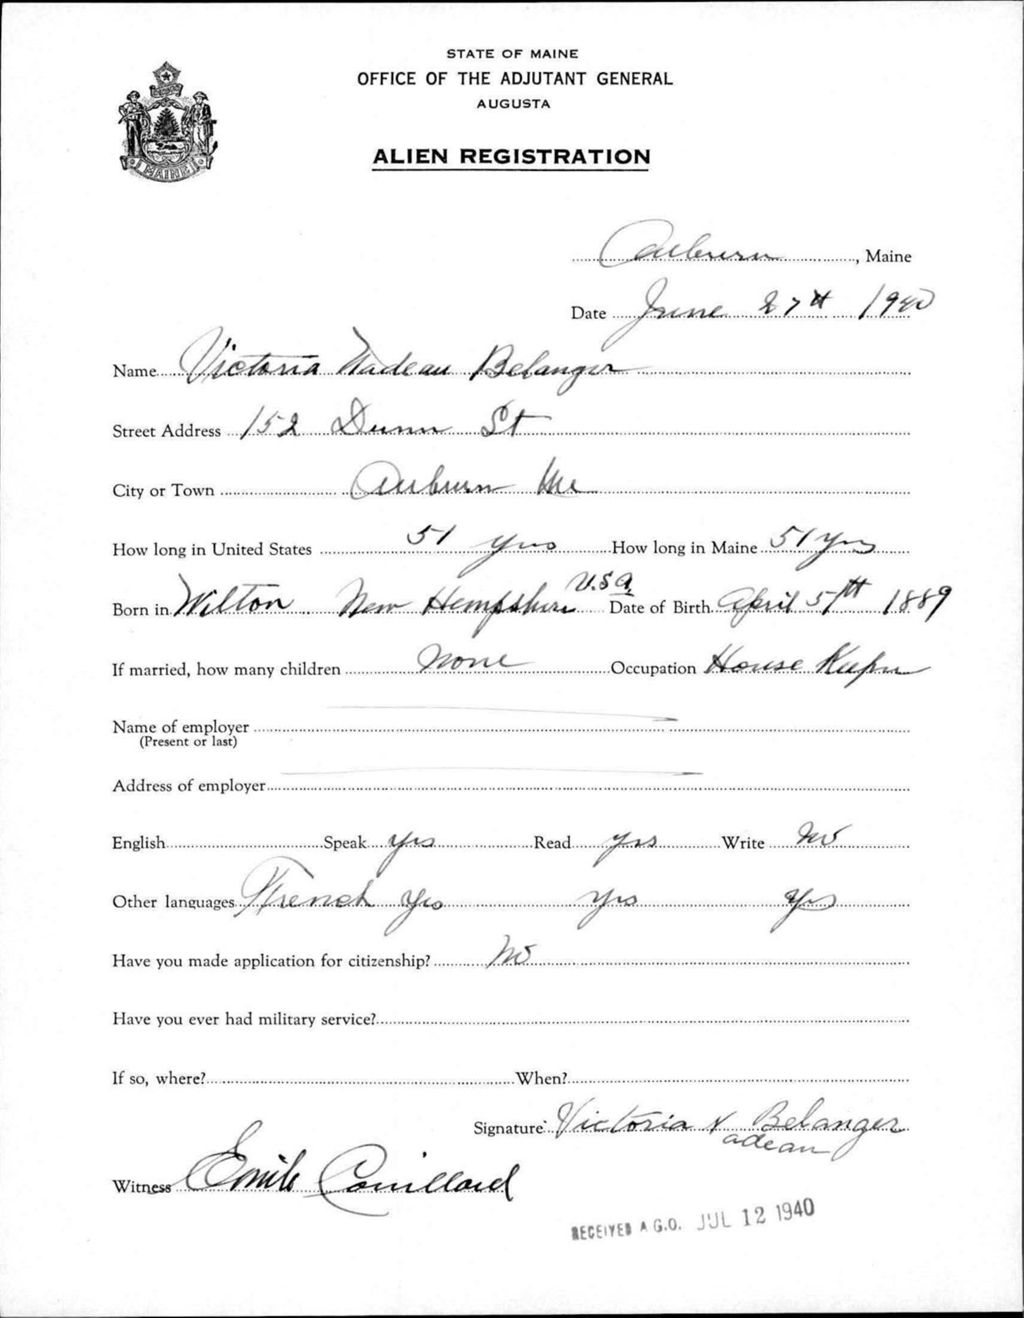 STATE OF MAINE
OFFICE OF THE ADJUTANT GENERAL
AUGUSTA
ALIEN REGISTRATION
MAINE
Auburn, Maine
Date June 27th 1940
Name Victoria Nadeau Belanger
Street Address 152 Dunn St
City or Town Auburn Me
How long in United States 51 yrs How long in Maine 51 yrs
Born in Wilton New Hempshire U.S.A. Date of Birth April 5th 1889
If married, how many children None Occupation House Keeper
Name of employer
(Present or last)
Address of employer
English Speak yes Read yes Write No
Other languages French yes yes yes
Have you made application for citizenship? No
Have you ever had military service?
If so, where? When?
Signature Victoria N Belanger
adeau
Witness Emile Couillard
RECEIVED A.G.O. JUL 12 1940